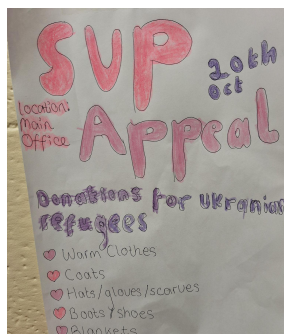 SUP
20th
Oct
Location:
Main
Office
Appeal
Donations for Ukranian
refugees
Warm Clothes
Coats
Hats/gloves/scarves
Boots/shoes
Blankets